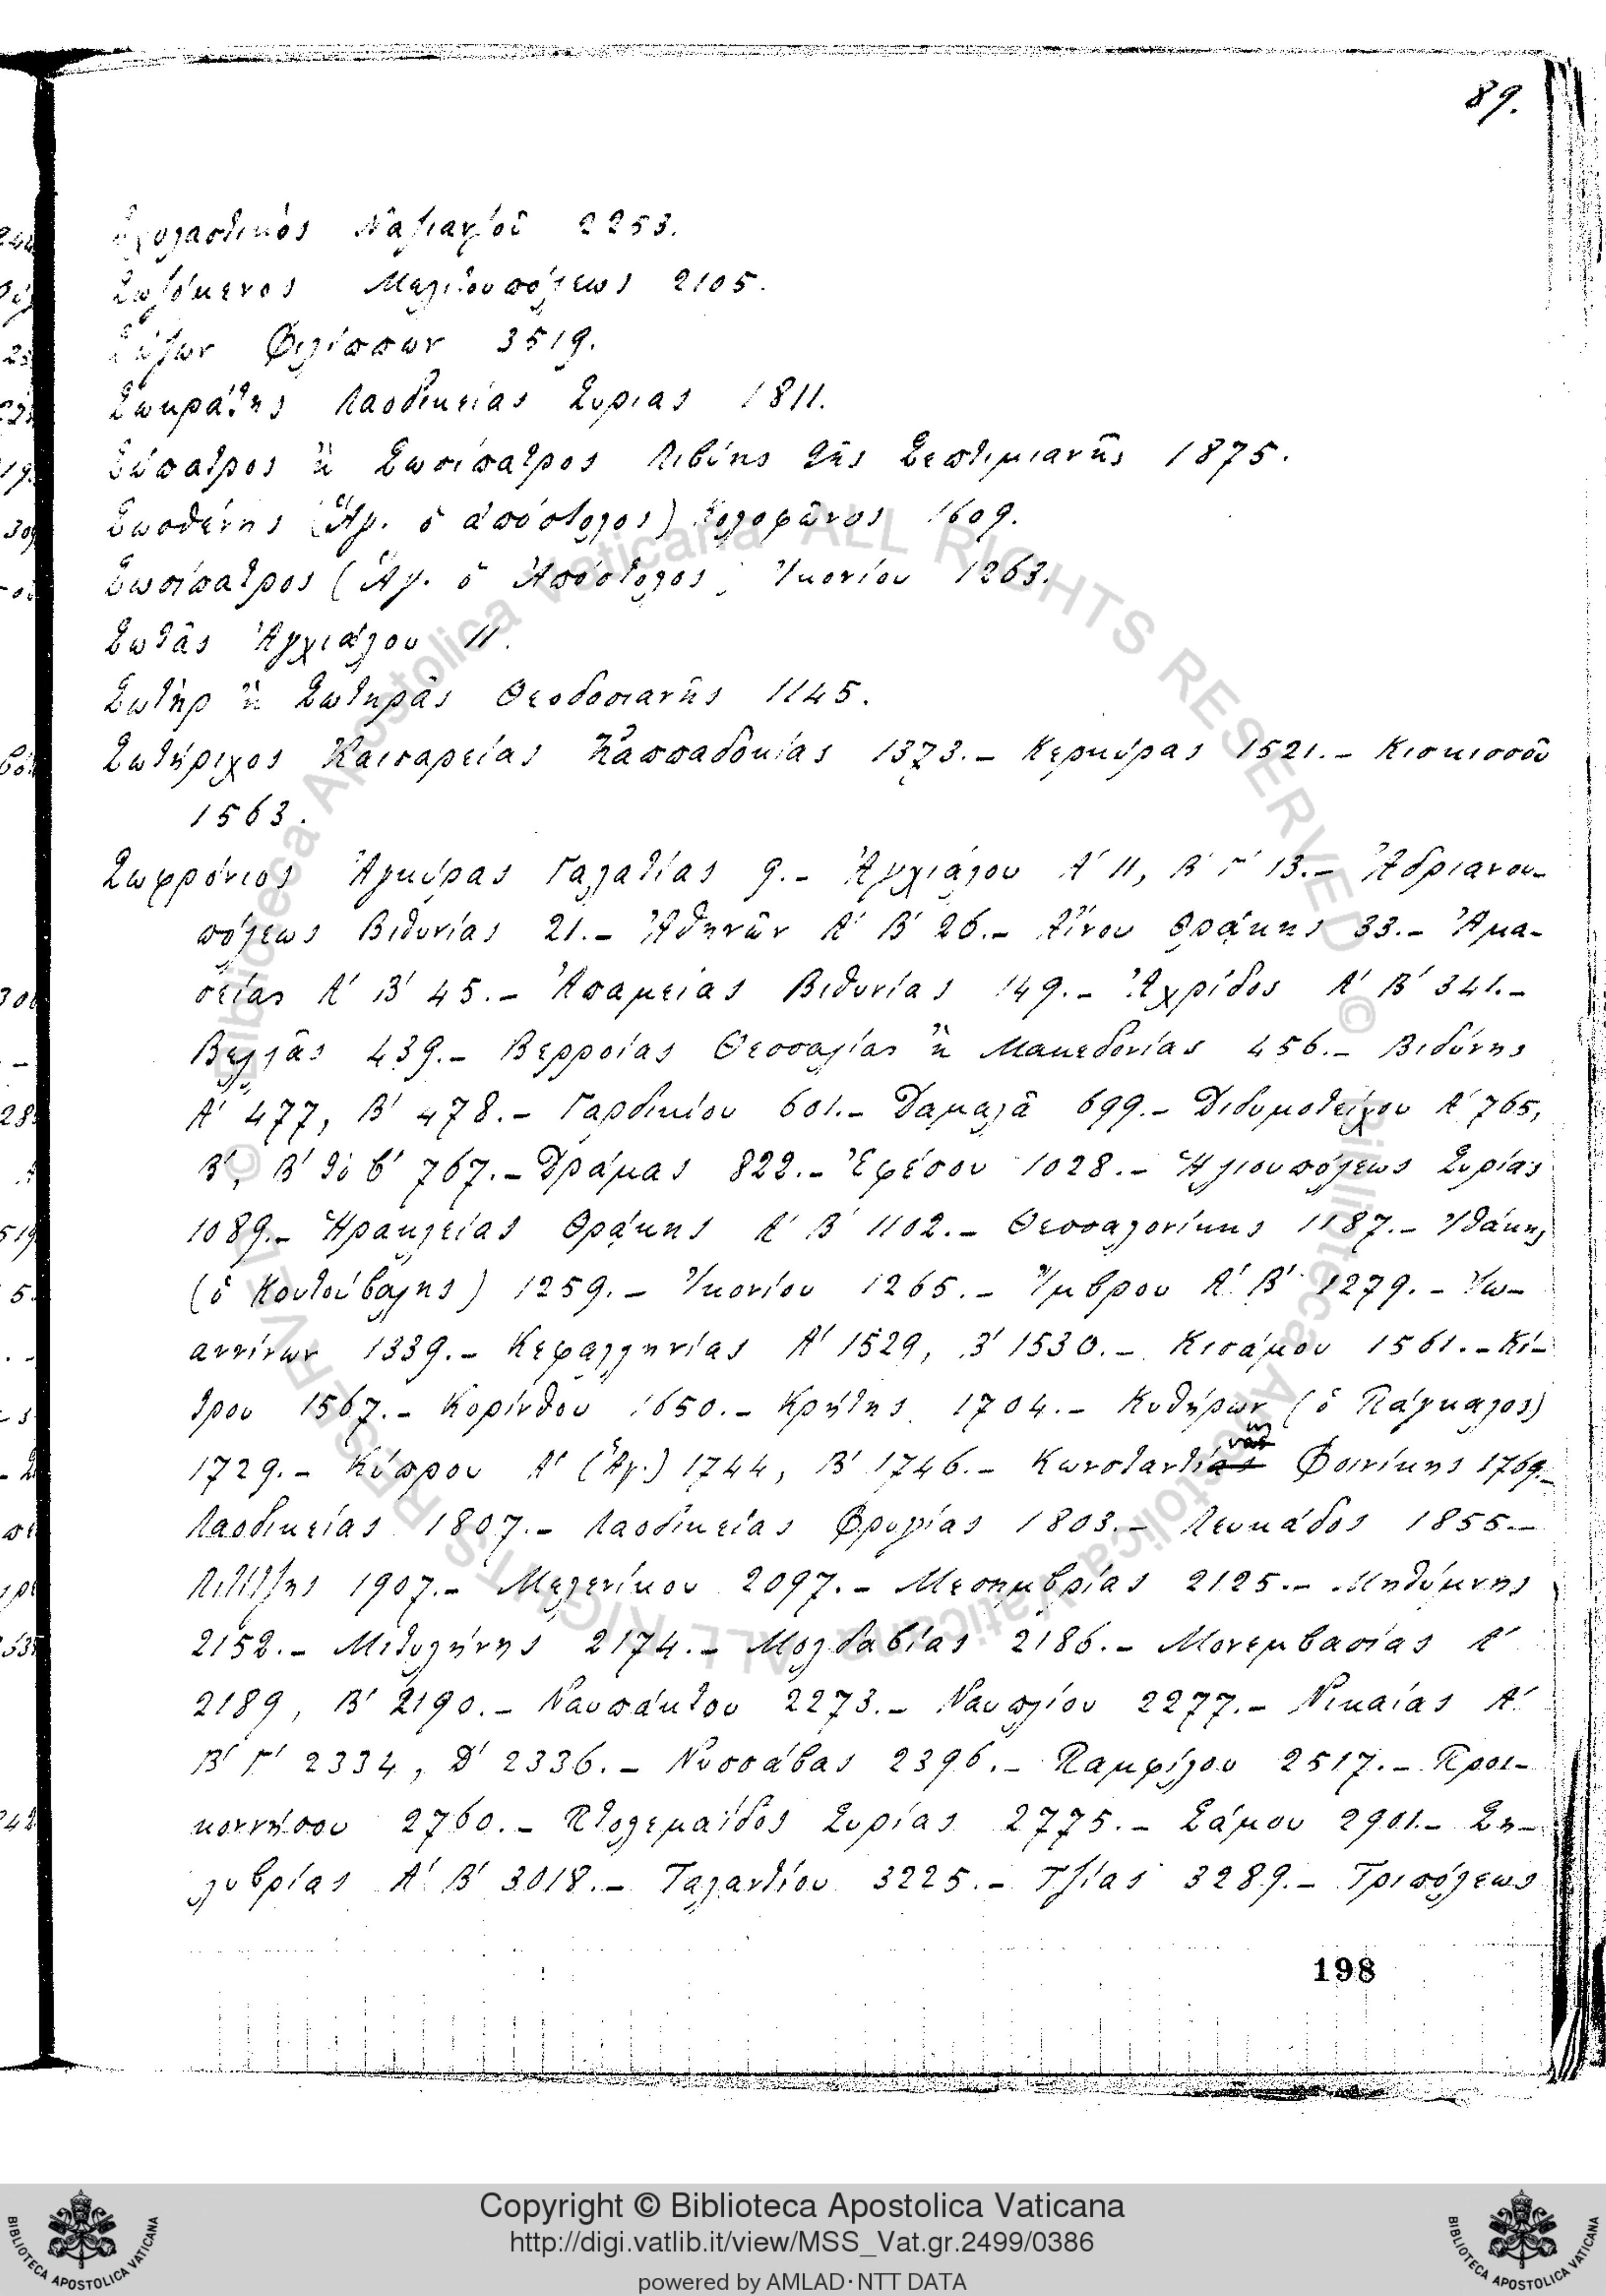 89.
Σχολαστικὸς Ναζιανζοῦ 2253.
Σωζόμενος Μελιτουπόλεως 2105.
Σώζων Φιλίππων 3519.
Σωκράτης Λαοδικείας Συριας 1811.
Σώπατρος ἢ Σωσίπατρος Λιβύης τῆς Σεπτιμιανῆς 1875.
Σωσθένης (Ἅγ. ὁ ἀπόστολος) Κολοφῶνος 1609.
Σωσίπατρος (Ἅγ. ὁ Ἀπόστολος) Ἰκονίου 1263.
Σωτᾶς Ἀγχιάλου 11.
Σωτὴρ ἢ Σωτηρᾶς Θεοδοσιανῆς 1145.
Σωτήριχος Καισαρείας Καππαδοκίας 1373.– Κερκύρας 1521.– Κισκισσοῦ
1563.
Σωφρόνιος Ἀγκύρας Γαλατίας 9.– Ἀγχιάλου Α΄ 11, Β΄ Γ΄ 13.– Ἀδριανου–
πόλεως Βιθυνίας 21.– Ἀθηνῶν Α΄ Β΄ 26.– Αἴνου Θράκης 33.– Ἀμα–
σείας Α΄ Β΄ 45.– Ἀπαμείας Βιθυνίας 149.– Ἀχρίδος Α΄ Β΄ 341.–
Βελλᾶς 439.– Βερροίας Θεσσαλίας ἢ Μακεδονίας 456.– Βιδύνης
Α΄ 477, Β΄ 478.– Γαρδικίου 601.– Δαμαλᾶ 699.– Διδυμοτείχου Α΄ 765,
Β΄, Β΄ τὸ β΄ 767.– Δράμας 822.– Ἐφέσου 1028.– Ἡλιουπόλεως Συρίας
1089.– Ἡρακλείας Θράκης Α΄ Β΄ 1102.– Θεσσαλονίκης 1187.– Ἰθάκης
(ὁ Κουτούβαλης) 1259.– Ἰκονίου 1265.– Ἴμβρου Α΄ Β΄ 1279.– Ἰω–
αννίνων 1339.– Κεφαλληνίας Α΄ 1529, Β΄ 1530.– Κισάμου 1561.– Κί–
τρου 1567.– Κορίνθου 1650.– Κρήτης 1704.– Κυθήρων (ὁ Πάγκαλος)
1729.– Κύπρου Α΄ (Ἅγ.) 1744, Β΄ 1746.– Κωνσταντίνης Φοινίκης 1769.–
Λαοδικείας 1807.– Λαοδικείας Φρυγίας 1803.– Λευκάδος 1855.–
Λιτίτζης 1907.– Μελενίκου 2097.– Μεσημβρίας 2125.– Μηθύμνης
2152.– Μιτυλήνης 2174.– Μολδαβίας 2186.– Μονεμβασίας Α΄
2189, Β΄ 2190.– Ναυπάκτου 2273.– Ναυπλίου 2277.– Νικαίας Α΄
Β΄ Γ΄ 2334, Δ΄ 2336.– Νυσσάβας 2396.– Παμφίλου 2517.– Προι–
κοννήσου 2760.– Πτολεμαΐδος Συρίας 2775.– Σάμου 2901.– Ση–
λυβρίας Α΄ Β΄ 3018.– Ταλαντίου 3225.– Τζίας 3289.– Τριπόλεως
198
© Biblioteca Apostolica Vaticana ALL RIGHTS RESERVED
© Biblioteca Apostolica Vaticana ALL RIGHTS RESERVED
Copyright © Biblioteca Apostolica Vaticana
http://digi.vatlib.it/view/MSS_Vat.gr.2499/0386
powered by AMLAD·NTT DATA
BIBLIOTECA APOSTOLICA VATICANA
BIBLIOTECA APOSTOLICA VATICANA